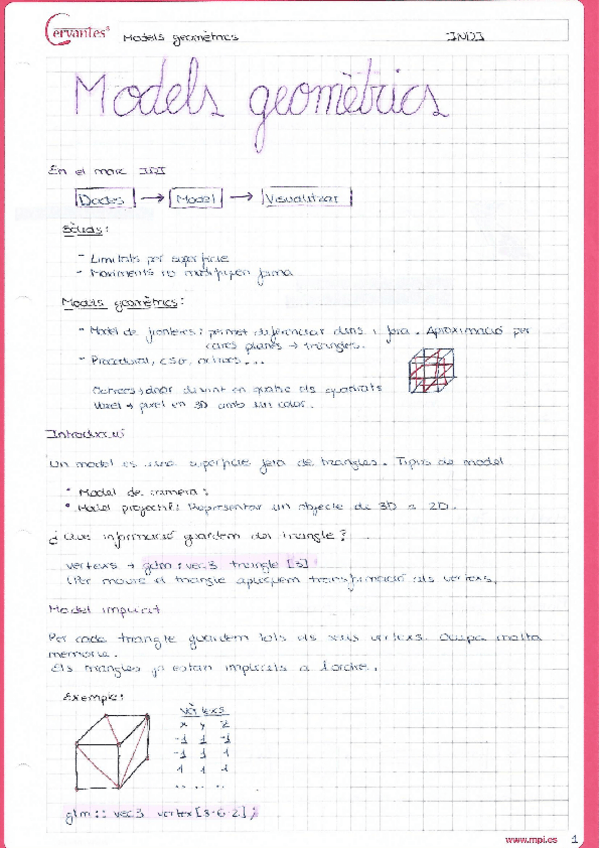 Cervantes® Models geomètrics INDI
Models geomètrics
En el marc INDI
Dades → Model → Visualitzar
Sòlids:
- Limitats per superfície
- Moviments no modifiquen forma
Models geomètrics:
- Model de fronteres: permet diferenciar dins i fora. Aproximació per
cares planes → triangles.
- Procedural, CSG, octrees...
dividint en quatre els quadrats
Voxel → pixel en 3D amb un color.
Introducció
Un model és una superfície feta de triangles. Tipus de model
• Model de càmera:
• Model projectiu: Representar un objecte de 3D a 2D.
¿Que informació guardem del triangle?
vèrtexs → glm::vec3 triangle [3]
(Per moure el triangle apliquem transformació als vèrtexs.
Model implícit
Per cada triangle guardem tots els seus vèrtexs. Ocupa molta
memòria.
Els triangles ja estan implícits a l'ordre.
Exemple:
Vèrtexs
x y z
-1 1 -1
-1 1 1
1 1 1
... .. .
glm:: vec3 vertex[3·6·2];
www.mpi.es 1